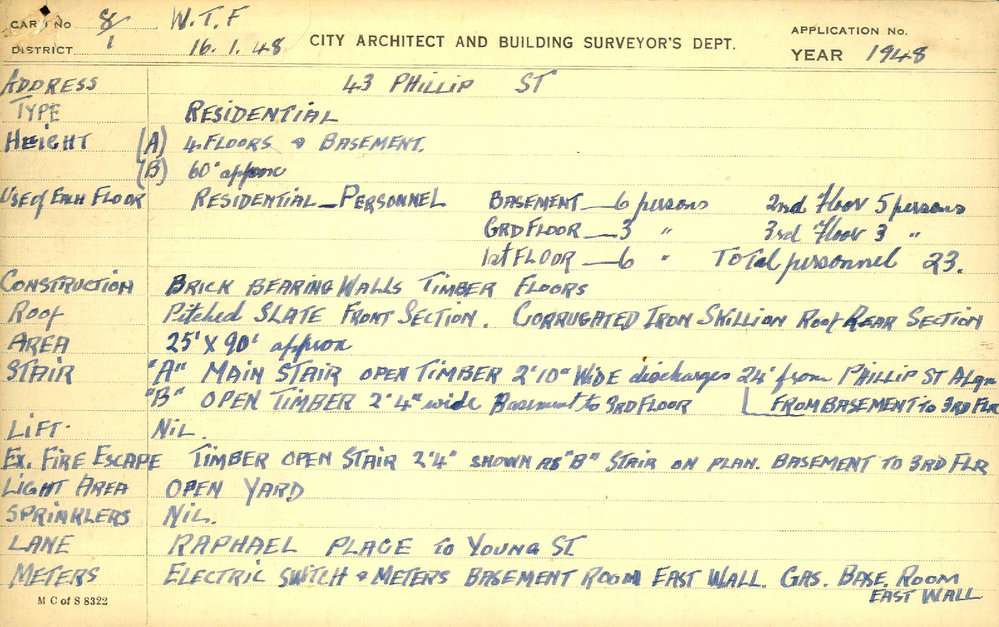 CARD No 8/1 W.T.F
DISTRICT 16.1.48 CITY ARCHITECT AND BUILDING SURVEYOR'S DEPT.
APPLICATION No.
YEAR 1948
ADDRESS 43 PHILLIP ST
TYPE RESIDENTIAL
HEIGHT (A) 4 FLOORS & BASEMENT.
(B) 60' approx
USE of EACH FLOOR RESIDENTIAL - PERSONNEL BASEMENT - 6 persons 2nd Floor 5 persons
GRD FLOOR - 3 " 3rd Floor 3 "
1st FLOOR - 6 " TOTAL personnel 23.
CONSTRUCTION BRICK BEARING WALLS TIMBER FLOORS
ROOF Pitched SLATE FRONT SECTION. CORRUGATED IRON SKILLION ROOF REAR SECTION
AREA 25' X 90' approx
STAIR "A" MAIN STAIR OPEN TIMBER 2'10" WIDE discharges 24' from PHILLIP ST Algn
"B" OPEN TIMBER 2'4" wide Basement to 3RD FLOOR FROM BASEMENT to 3RD FLR
LIFT. NIL.
EX. FIRE ESCAPE TIMBER OPEN STAIR 2'4" SHOWN AS "B" STAIR ON PLAN. BASEMENT TO 3RD FLR
LIGHT AREA OPEN YARD
SPRINKLERS NIL.
LANE RAPHAEL PLACE to YOUNG ST
METERS ELECTRIC SWITCH & METERS BASEMENT ROOM EAST WALL. GAS. BASE. ROOM
EAST WALL
M C of S 8322